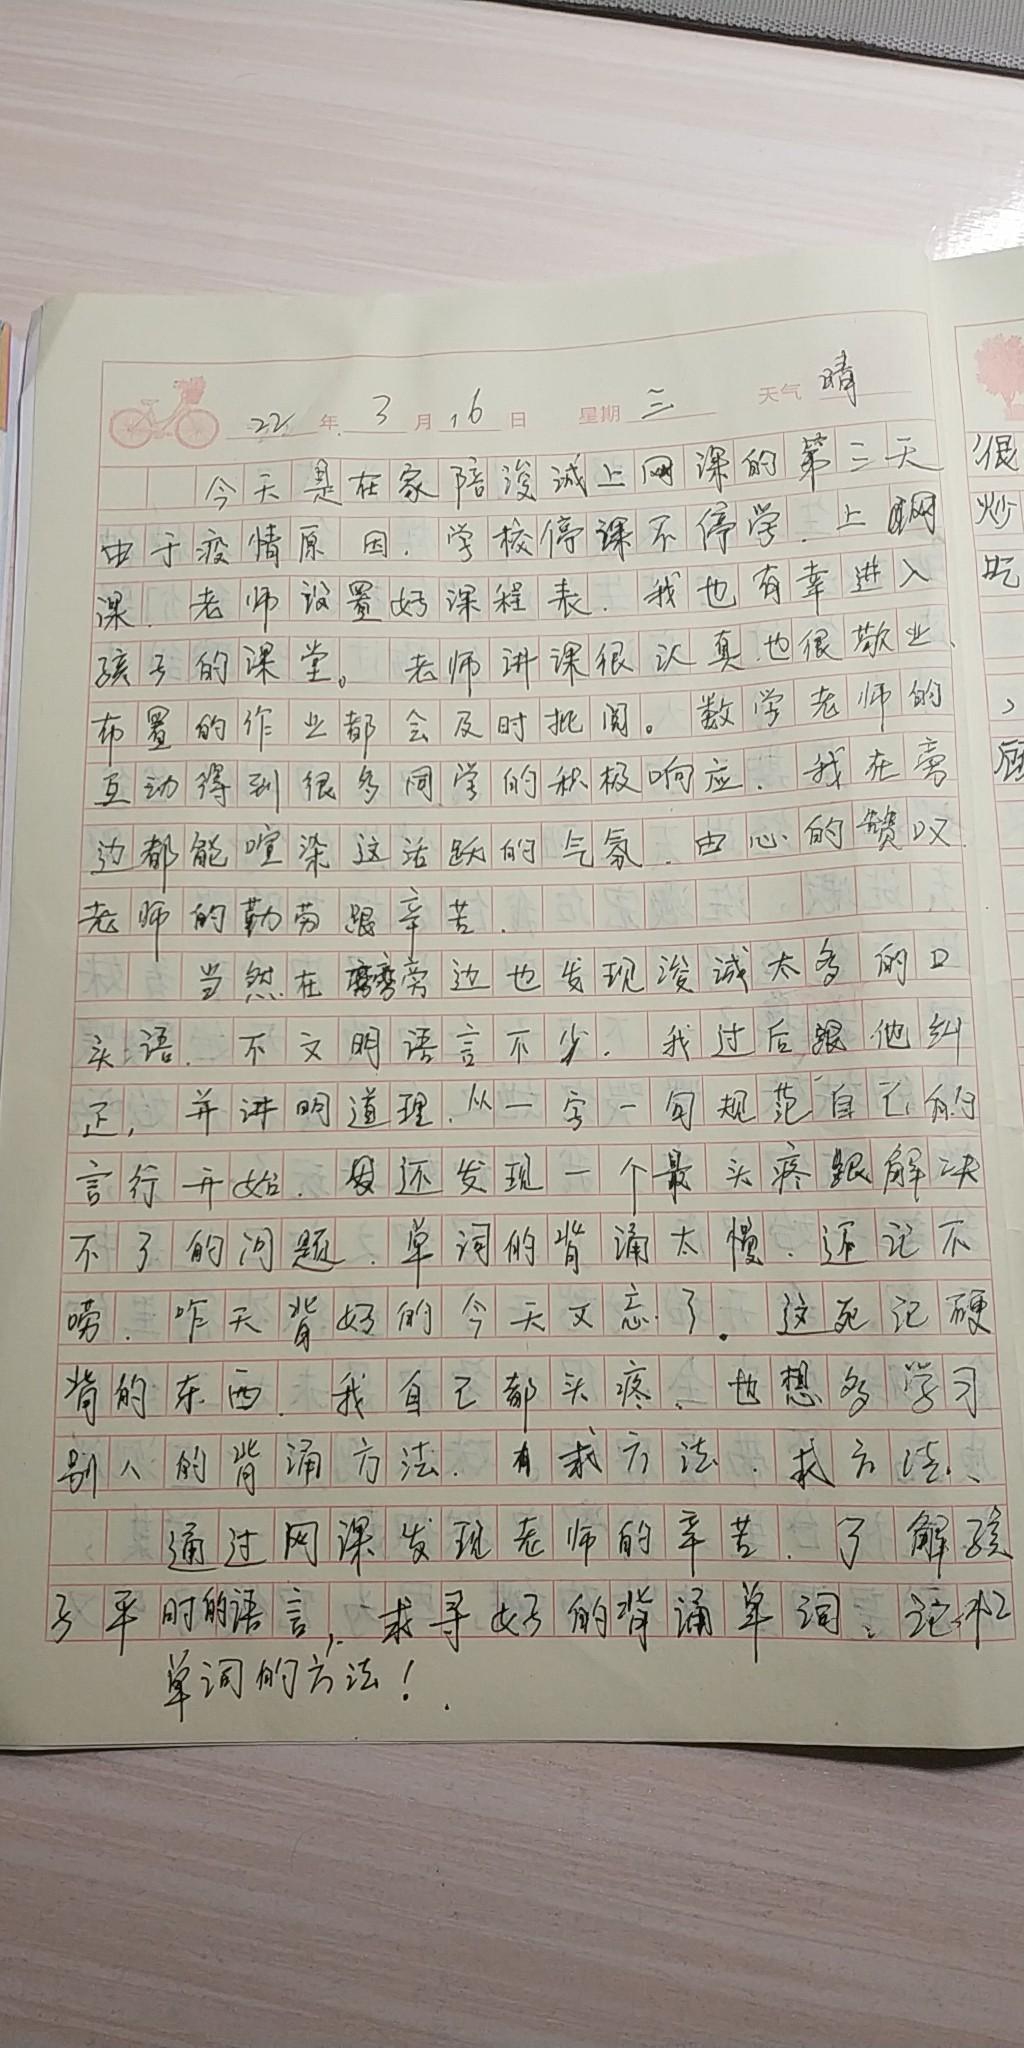 22 年 3 月 16 日 星期 三 天气 晴
今天是在家陪浚诚上网课的第三天
由于疫情原因. 学校停课不停学. 上网
课. 老师设置好课程表. 我也有幸进入
孩子的课堂。老师讲课很认真.也很敬业、
布置的作业都会及时批阅。数学老师的
互动得到很多同学的积极响应. 我在旁
边都能喧染这活跃的气氛. 由心的赞叹.
老师的勤劳跟辛苦.
当然在旁边也发现浚诚太多的口
头语. 不文明语言不少. 我过后跟他纠
正, 并讲明道理. 从一字一句规范自己的
言行开始. 还发现一个最头疼跟解决
不了的问题. 单词的背诵太慢、还记不
唠. 昨天背好的今天又忘了. 这死记硬
背的东西. 我自己都头疼、也想多学习
别人的背诵方法. 有求方法. 求方法、
通过网课发现老师的辛苦. 了解孩
子平时的语言, 求寻好的背诵单词、记忆
单词的方法!.
很
炒
吃
、
顾